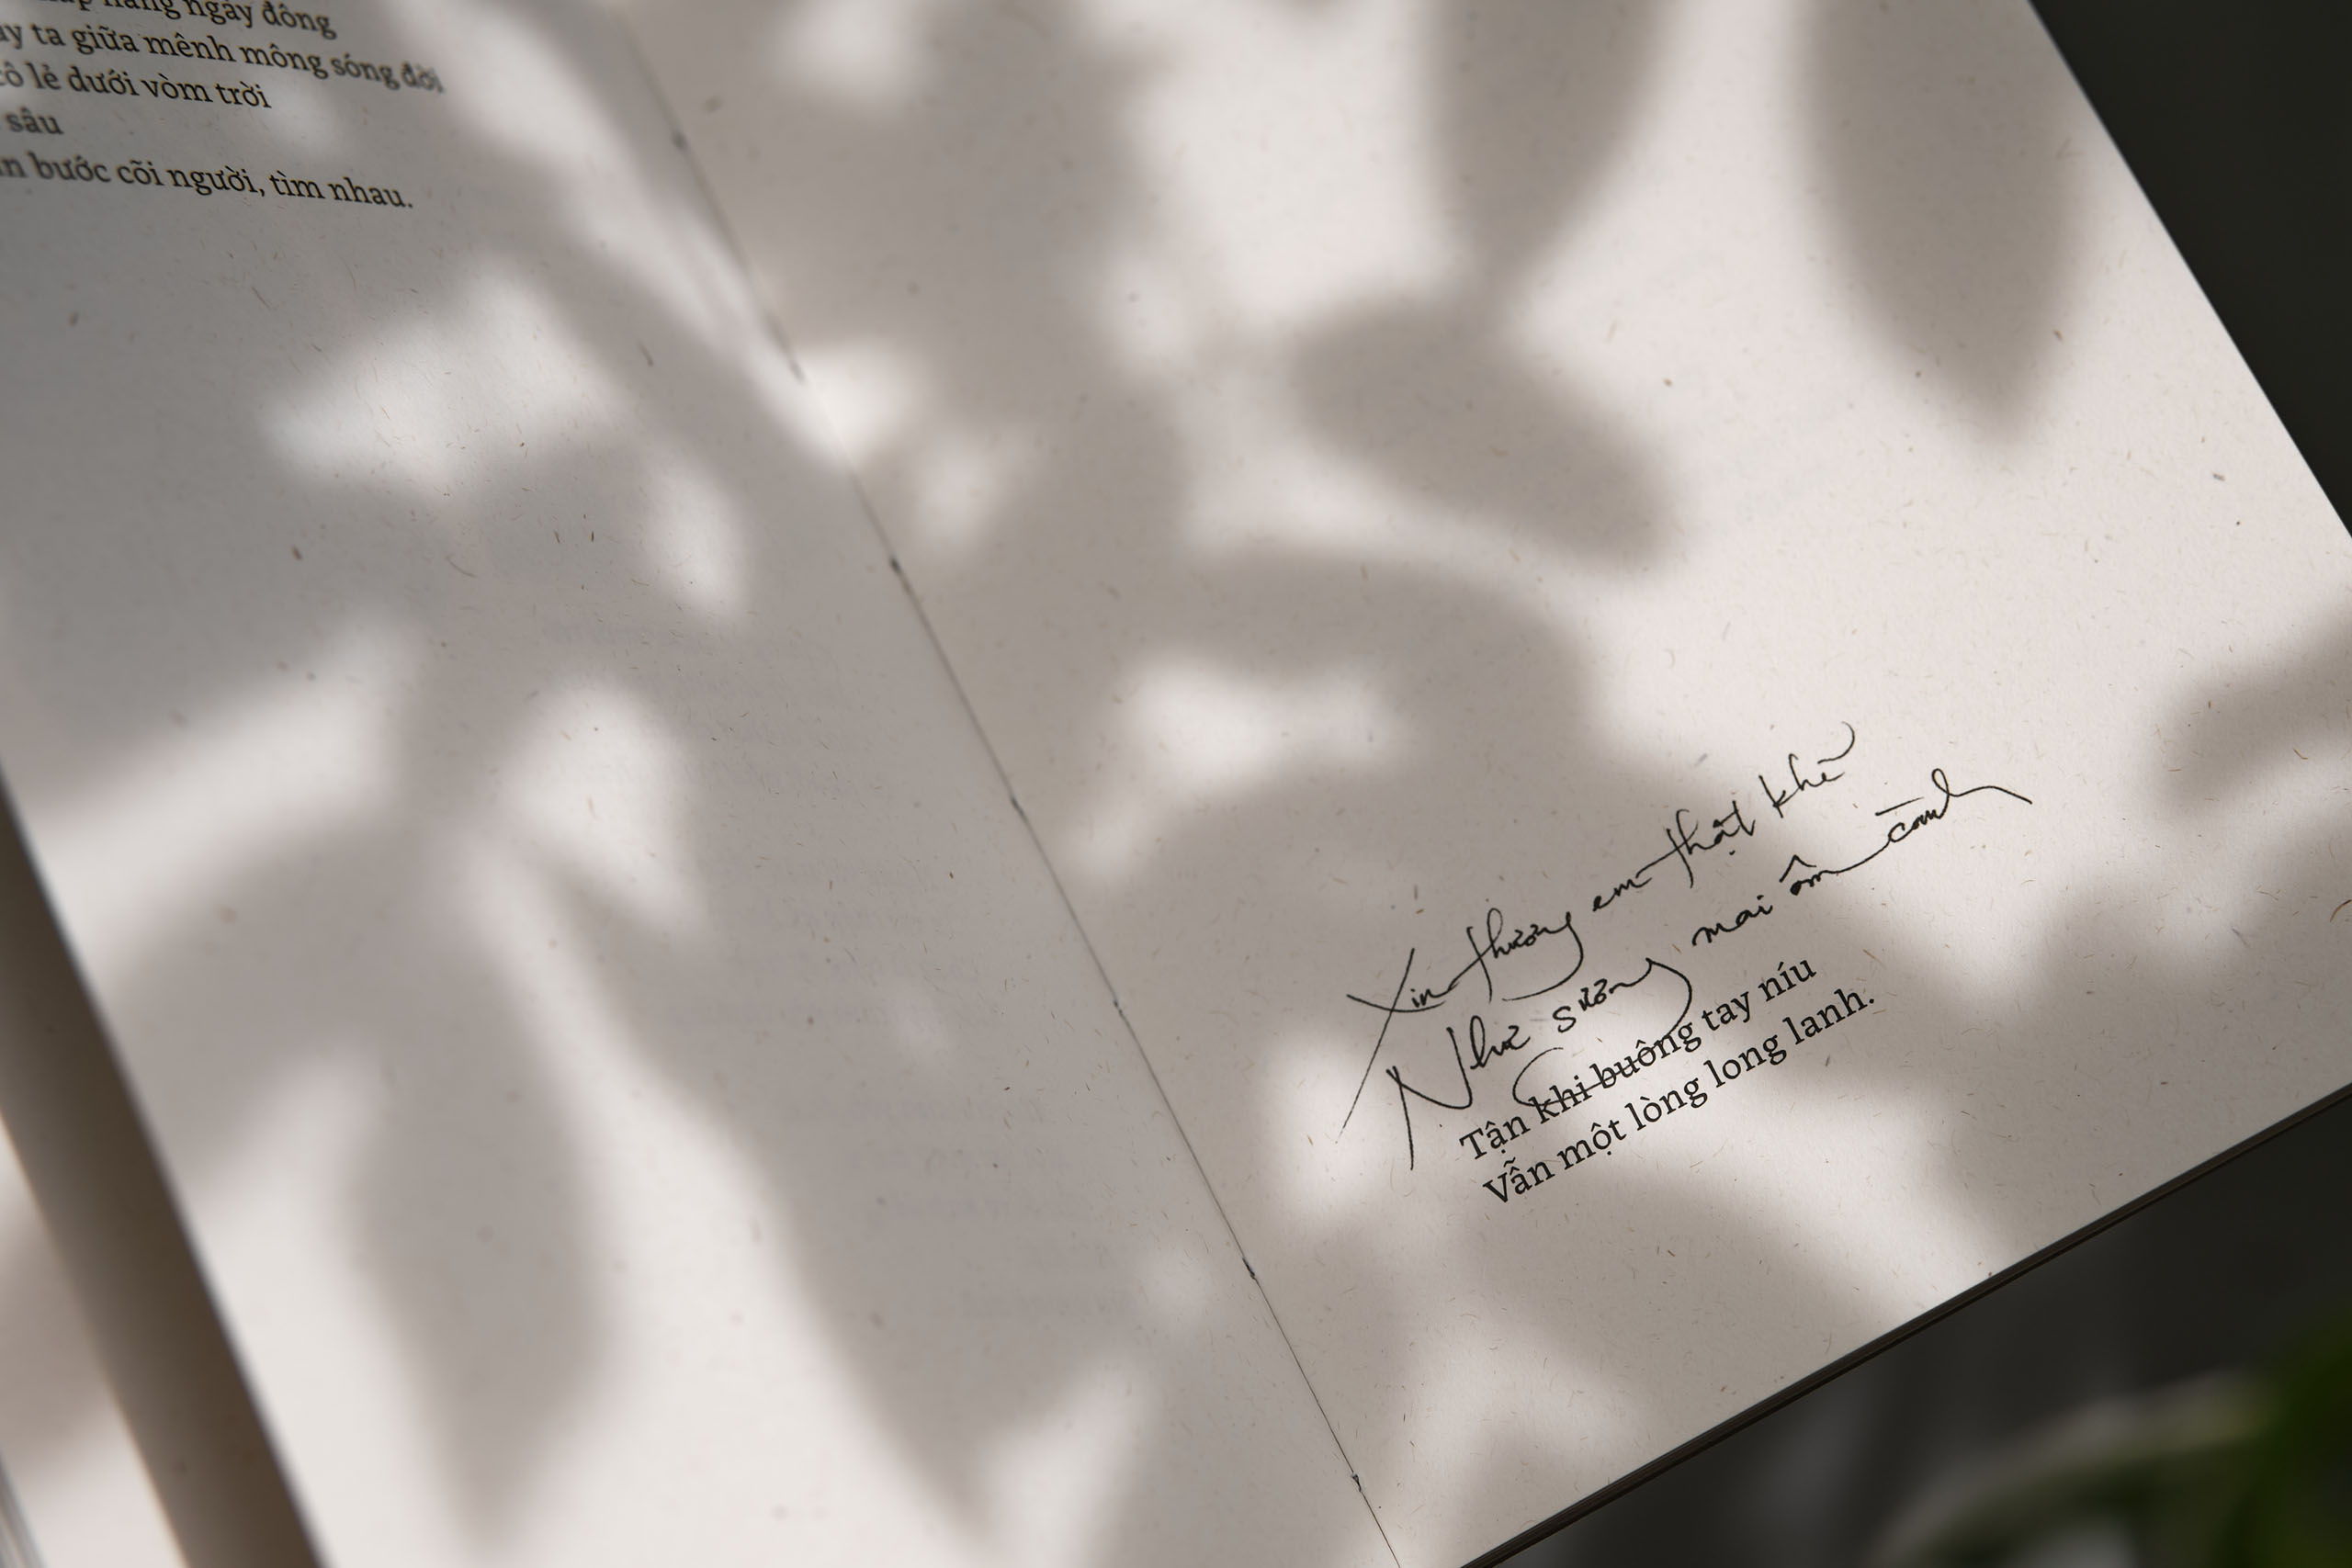 nắng ngày đông
ta giữa mênh mông sóng đời
lẻ dưới vòm trời
sâu
bước cõi người, tìm nhau.
Xin thương em thật khẽ
Như sương mai ôm cành
Tận khi buông tay níu
Vẫn một lòng long lanh.